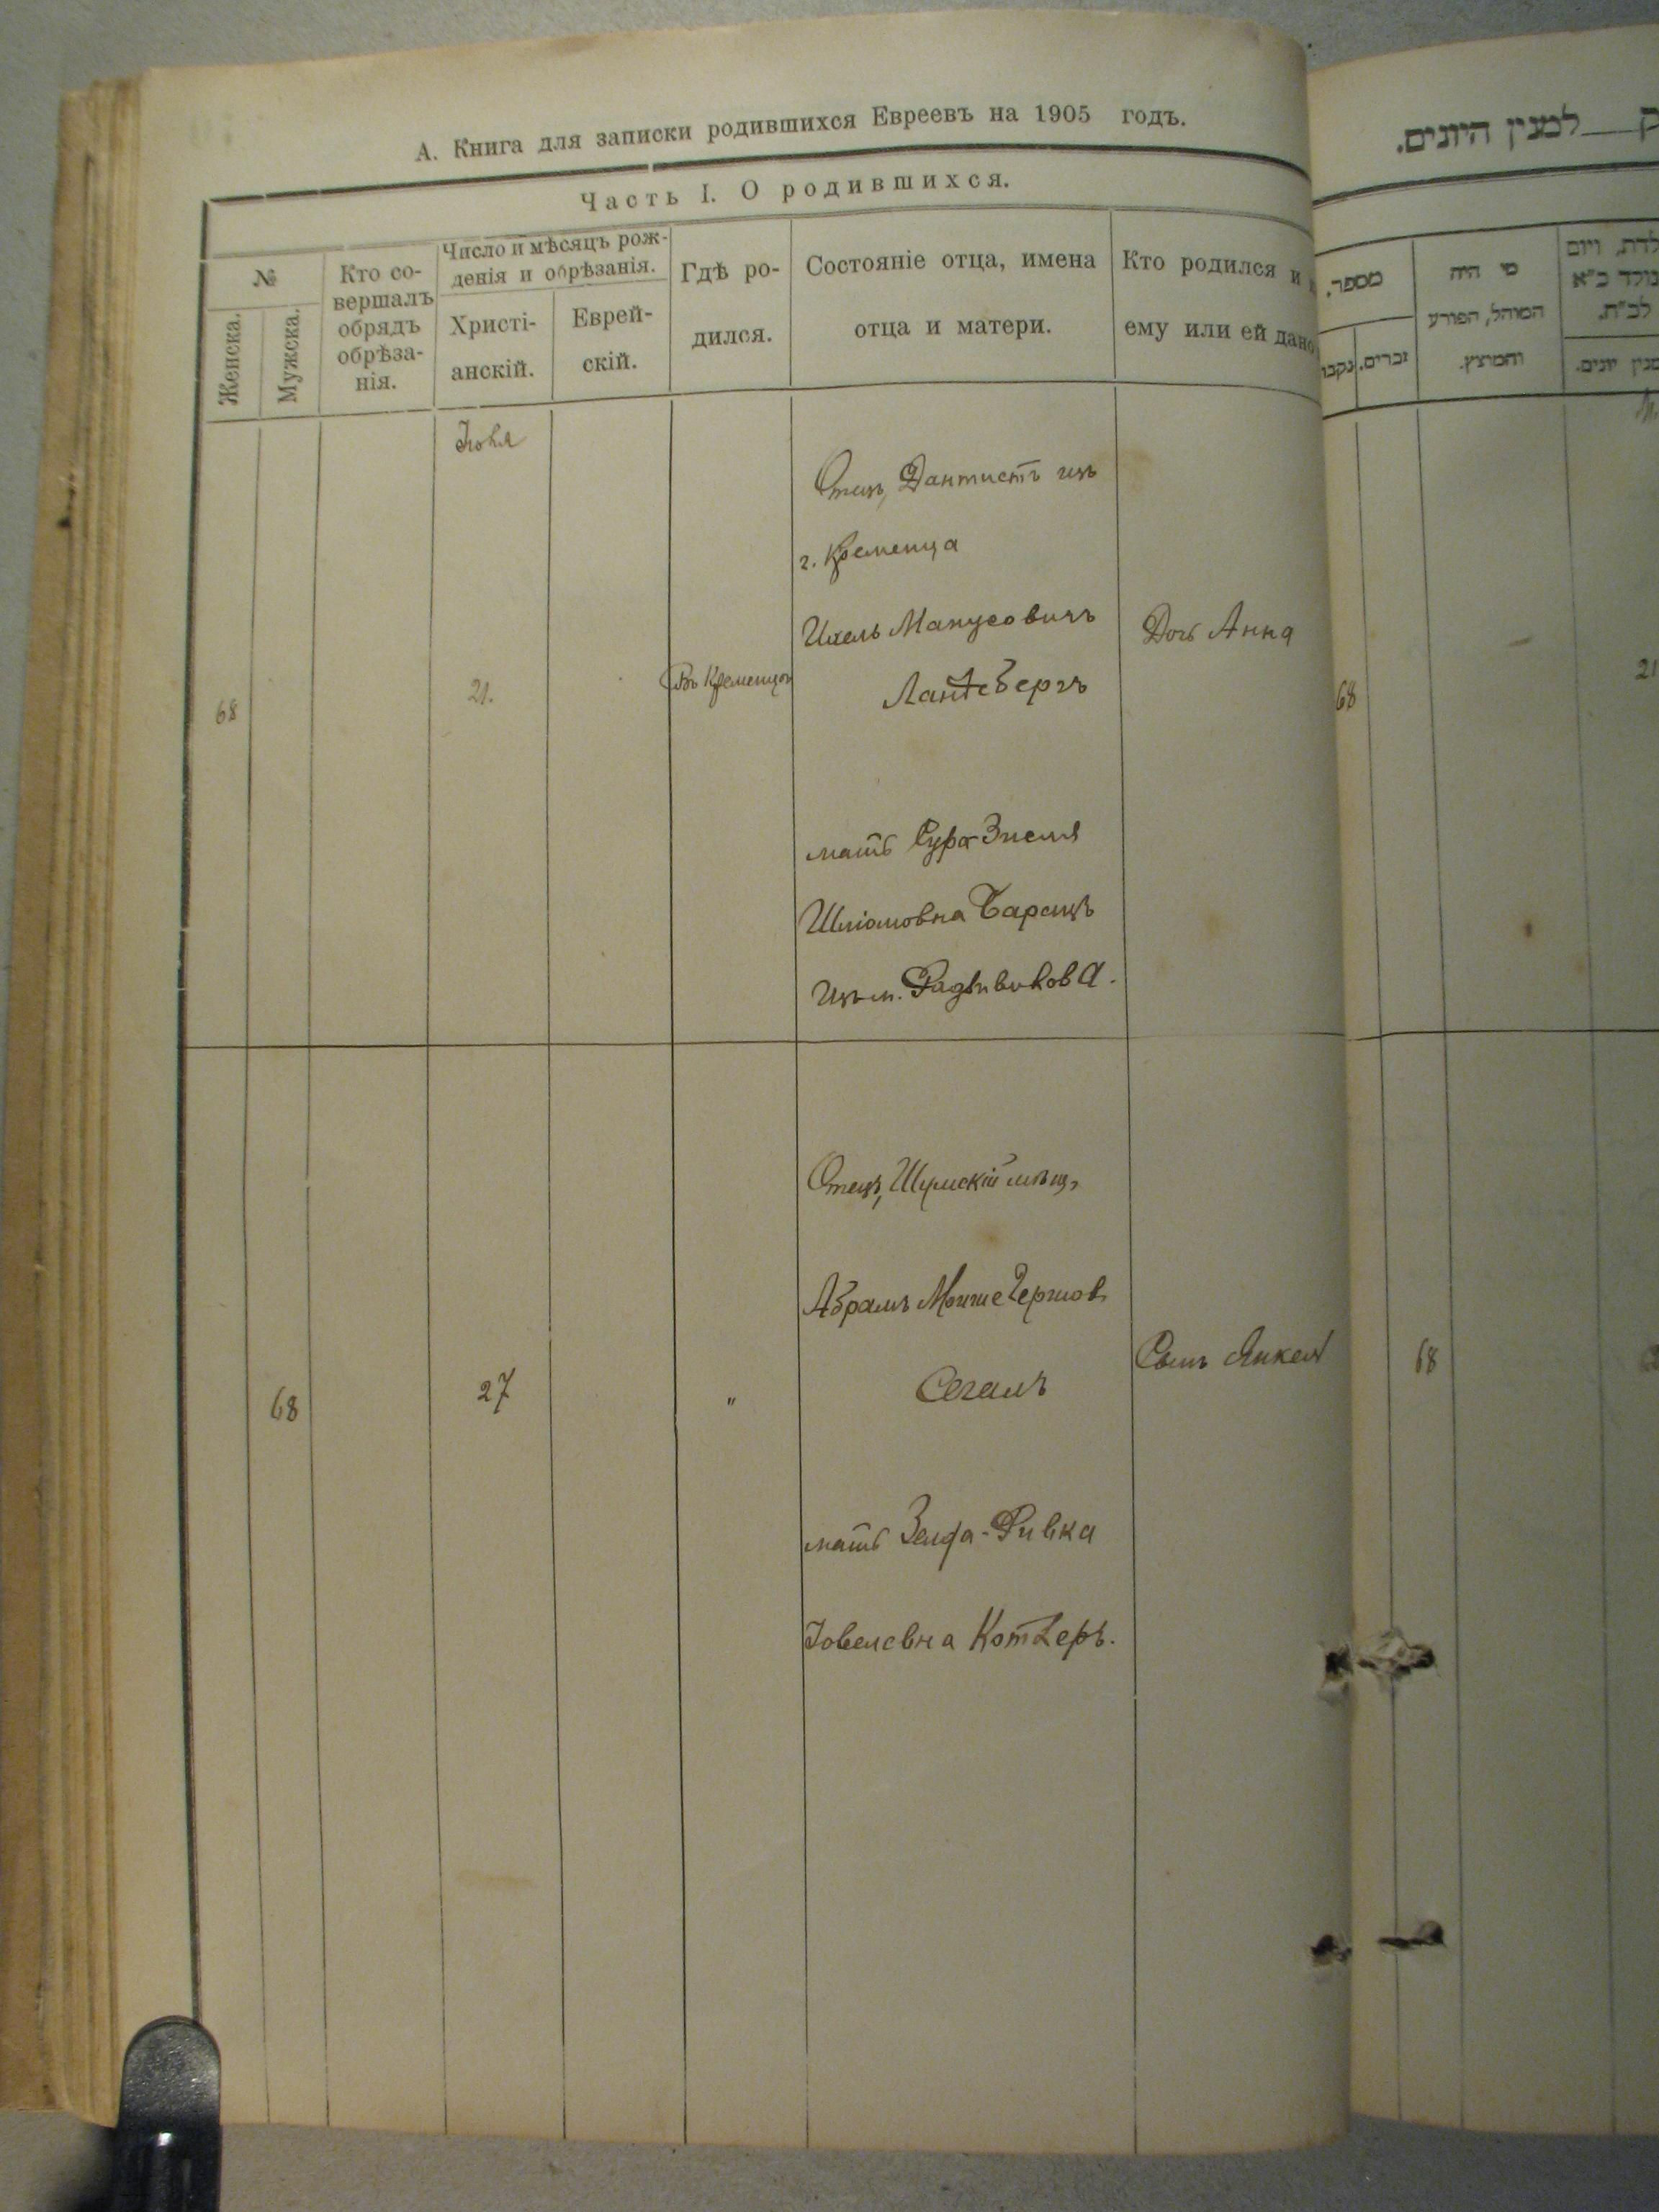 А. Книга для записки родившихся Евреевъ на 1905 годъ.
Часть I. О родившихся.
№
Женска.
Мужска.
Кто со-
вершалъ
обрядъ
обрѣза-
нія.
Число и мѣсяцъ рож-
денія и обрѣзанія.
Христі-
анскій.
Еврей-
скій.
Гдѣ ро-
дился.
Состояніе отца, имена
отца и матери.
Кто родился и
ему или ей дано
68
21.
Въ Кременцѣ
Отецъ, Дантистъ изъ
г. Кременца
Ихель Манусовичъ
Ландсбергъ
мать Сура
Шліомовна Барацъ
Изъ м. Радзивилова.
Дочь Анна
68
27
"
Отецъ, Шумскій мѣщ.
Абрамъ Мойше Гершов.
Сегалъ
мать Зелда-Ривка
Іовелевна Котлеръ.
Сынъ Янкель
למנין היונים.
מספר.
נקבו
זכרים.
מי היה
המוהל, הפורע
והמוצץ.
לדת, ויום
מולד כ"א
לב"ח.
מנין יונים.
68
21
68